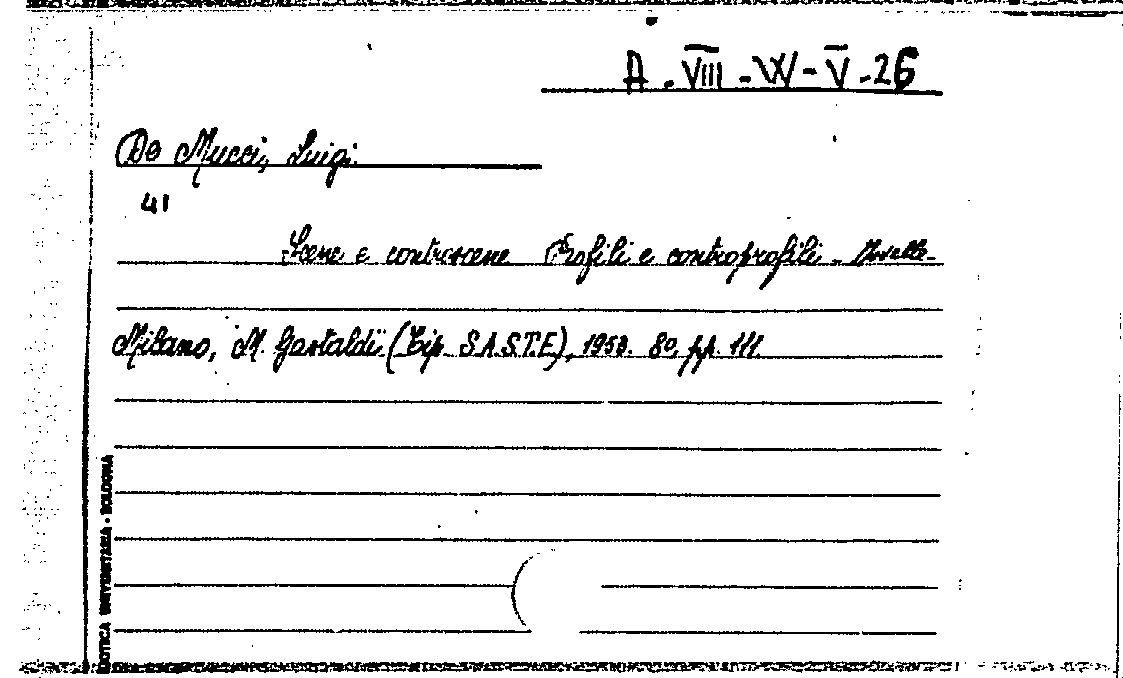 A. VIII - W - V - 26
De Mucci, Luigi.
41
Scene e controscene Profili e controprofili - Novelle -
Milano, M. Gastaldi (Tip. S.A.S.T.E), 1958. 8º, pp. 111.
BIBLIOTECA UNIVERSITARIA - BOLOGNA